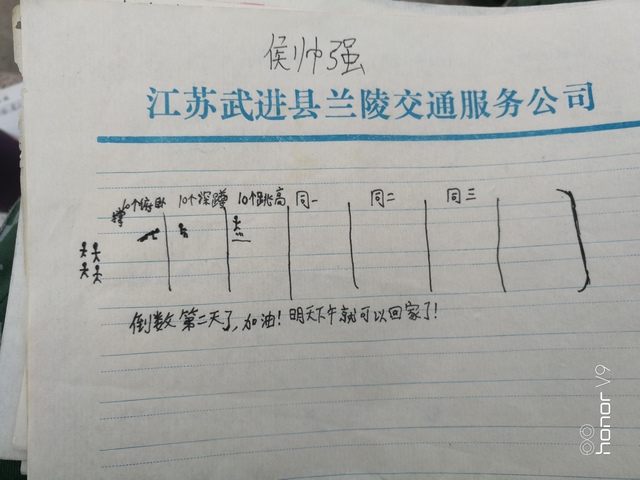 侯帅强
江苏武进县兰陵交通服务公司
10个俯卧撑 10个深蹲 10个跳高 同一 同二 同三
倒数第二天了,加油!明天下午就可以回家了!
honor V9